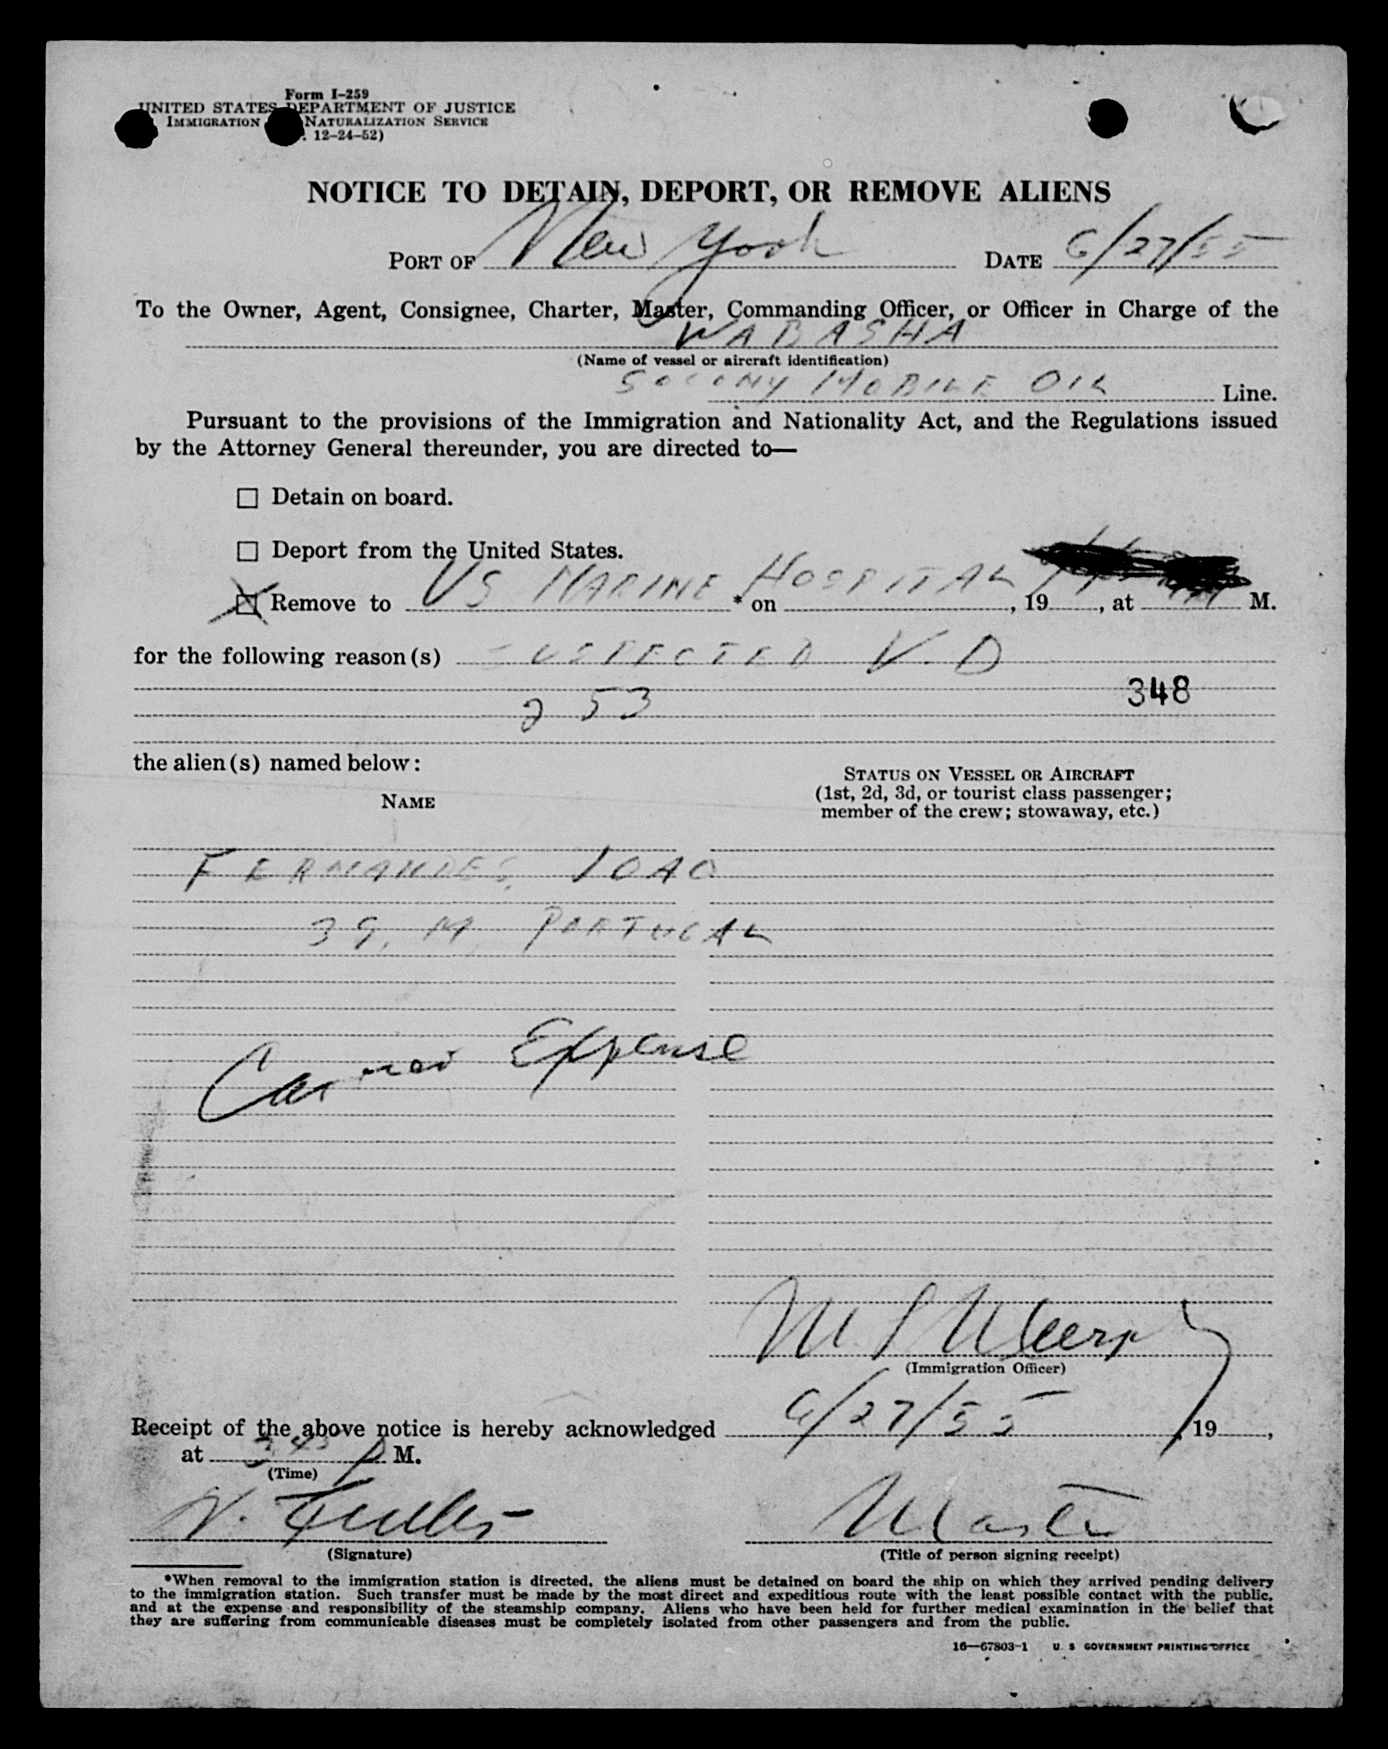 Form I-259
UNITED STATES DEPARTMENT OF JUSTICE
IMMIGRATION NATURALIZATION SERVICE
12-24-52)
NOTICE TO DETAIN, DEPORT, OR REMOVE ALIENS
PORT OF New York DATE 6/27/55
To the Owner, Agent, Consignee, Charter, Master, Commanding Officer, or Officer in Charge of the
WABASHA
(Name of vessel or aircraft identification)
SOCONY MOBILE OIL Line.
Pursuant to the provisions of the Immigration and Nationality Act, and the Regulations issued
by the Attorney General thereunder, you are directed to—
☐ Detain on board.
☐ Deport from the United States.
☒ Remove to US MARINE HOSPITAL * on , 19 , at M.
for the following reason(s) SUSPECTED V.D
253 348
the alien(s) named below:
NAME
STATUS ON VESSEL OR AIRCRAFT
(1st, 2d, 3d, or tourist class passenger;
member of the crew; stowaway, etc.)
FERNANDES, IOAO
39, M, PORTUGAL
Expense
(Immigration Officer)
Receipt of the above notice is hereby acknowledged 6/27/55 19 ,
at 3 45 P M.
(Time)
Master
(Signature) (Title of person signing receipt)
*When removal to the immigration station is directed, the aliens must be detained on board the ship on which they arrived pending delivery
to the immigration station. Such transfer must be made by the most direct and expeditious route with the least possible contact with the public,
and at the expense and responsibility of the steamship company. Aliens who have been held for further medical examination in the belief that
they are suffering from communicable diseases must be completely isolated from other passengers and from the public.
16—67803-1 U. S. GOVERNMENT PRINTING OFFICE